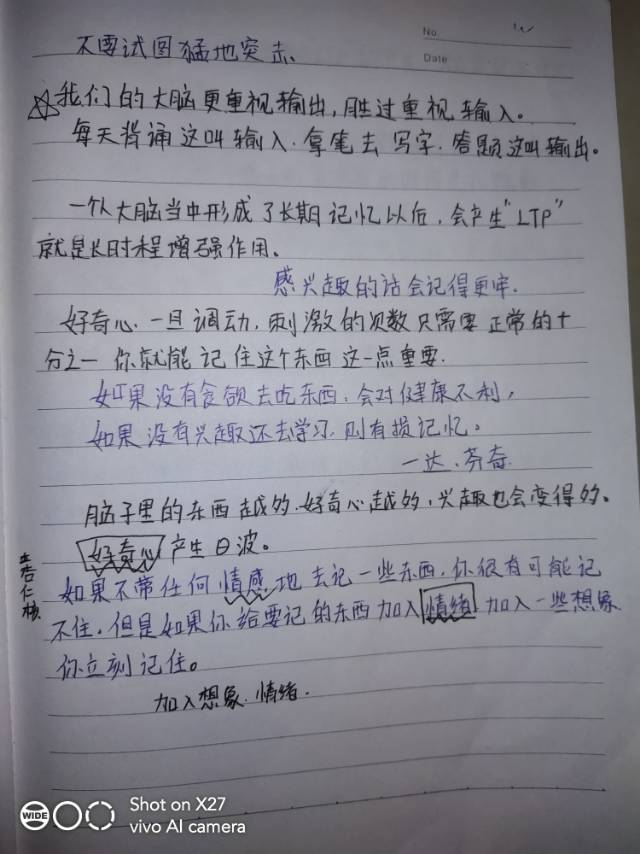 No.
Date
不要试图猛地突击、
☆我们的大脑更重视输出,胜过重视输入。
每天背诵这叫输入.拿笔去写字.答题这叫输出。
一个人大脑当中形成了长期记忆以后,会产生"LTP"
就是长时程增强作用。
感兴趣的话会记得更牢.
好奇心.一旦调动,刺激的次数只需要正常的十
分之一你就能记住这个东西这一点重要.
如果没有食欲去吃东西,会对健康不利,
如果没有兴趣还去学习,则有损记忆。
一达.芬奇
脑子里的东西越多.好奇心越多,兴趣也会变得多。
好奇心产生θ波。
杏仁核
如果不带任何情感地去记一些东西,你很有可能记
不住,但是如果你给要记的东西加入情绪加入一些想象
你立刻记住。
加入想象.情绪.
WIDE
Shot on X27
vivo AI camera